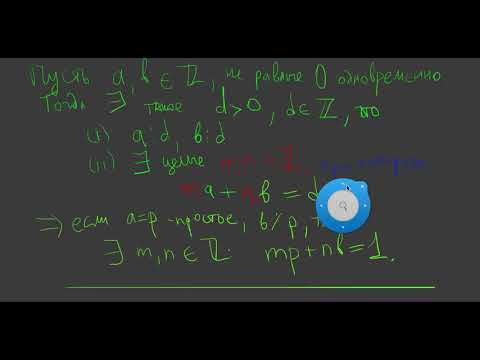 Пусть a, b ∈ ℤ, не равные 0 одновременно
Тогда ∃ такое d>0, d∈ℤ, что
(i) a⋮d, b⋮d
(ii) ∃ целые m, n ∈ ℤ,
ma + nb = d
⇒ если a=p - простое, b⋮̸p,
∃ m,n ∈ ℤ: mp+nb=1.